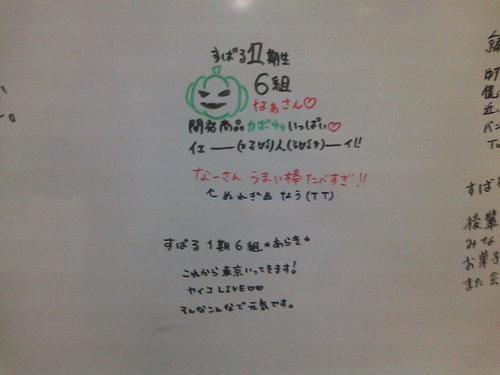 すばる1期生
6組
なぁさん♡
開発商品カボチャいっぱい♡
なーさん うまい棒たべすぎ!!
↑ぬれぎぬ なう(TT)
すばる1期6組*あらき*
これから東京いってきます!
ヤイコLIVE♡♡
そんなこんなで元気です。
すば
後輩
みな
お菓子
また会